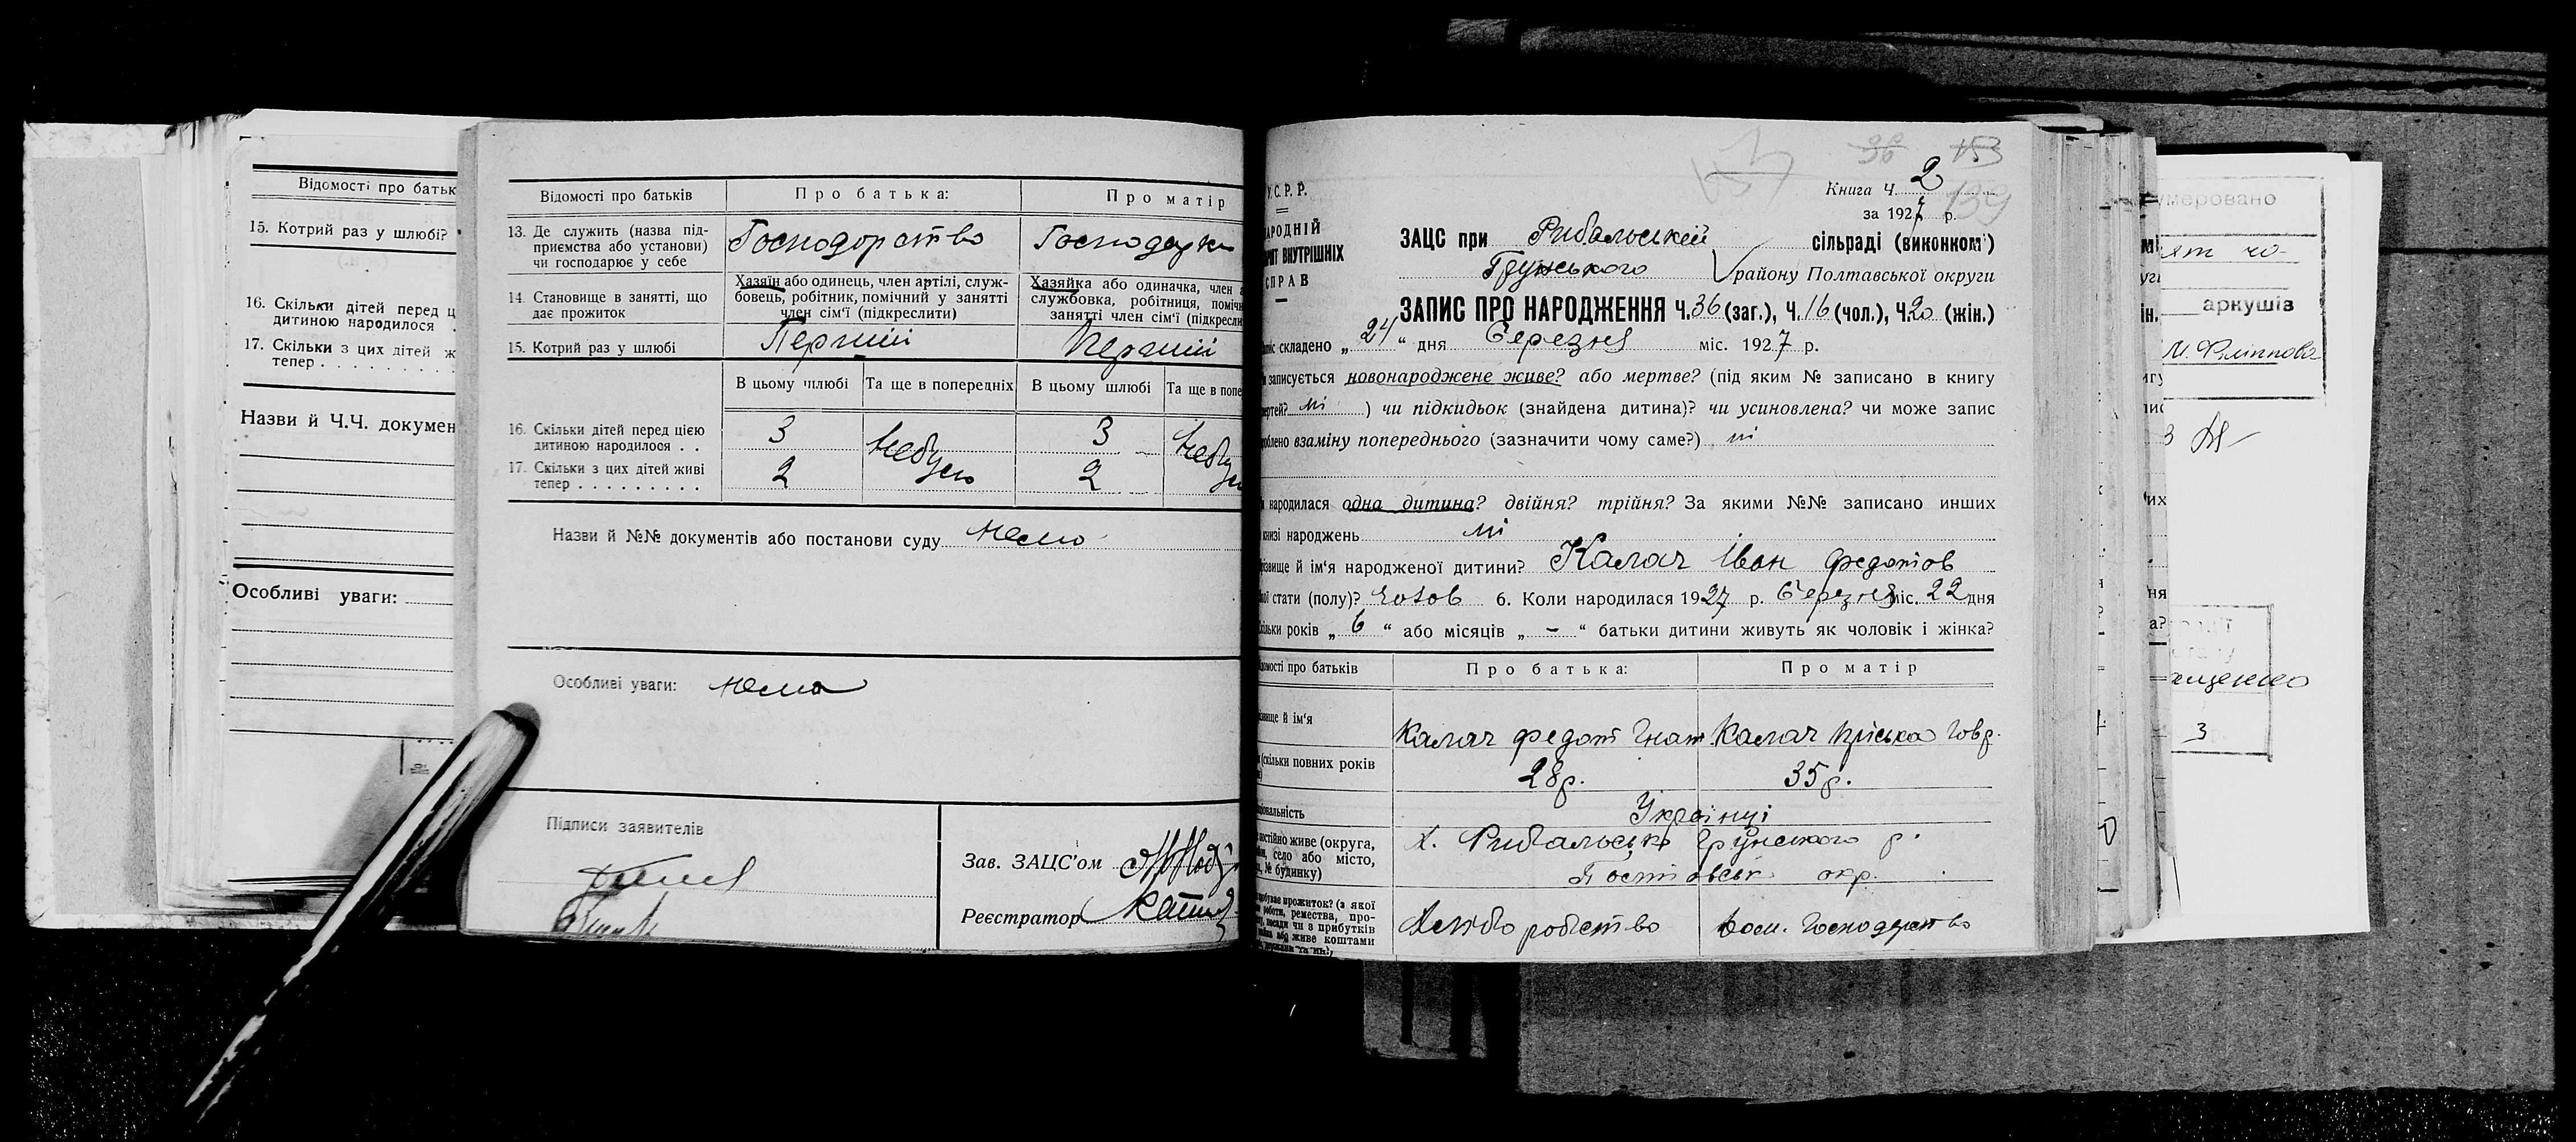 Відомості про батьк
15. Котрий раз у шлюбі?
16. Скільки дітей перед ц
дитиною народилося .
17. Скільки з цих дітей ж
тепер . . . . . . . . .
Назви й Ч.Ч. докумен
Особливі уваги:
Відомості про батьків
Про батька:
Про матір
13. Де служить (назва під-
приємства або установи)
чи господарює у себе
Господарство
Господарка
14. Становище в занятті, що
дає прожиток
Хазяїн або одинець, член артілі, служ-
бовець, робітник, помічний у занятті
член сім'ї (підкреслити)
Хазяйка або одиначка, член а
службовка, робітниця, поміч
занятті член сім'ї (підкресли
15. Котрий раз у шлюбі
Перший
Перший
В цьому шлюбі
Та ще в попередніх
В цьому шлюбі
Та ще в попе
16. Скільки дітей перед цією
дитиною народилося . .
3
Небуло
3
Небуло
17. Скільки з цих дітей живі
тепер . . . . . . . . .
2
2
Назви й №№ документів або постанови суду нема
Особливі уваги: нема
Підписи заявителів
Зав. ЗАЦС'ом
Реєстратор
36 153
157
Книга Ч. 2
139
за 1927 р.
У.С.Р.Р.
АРОДНІЙ
РІЯТ ВНУТРІШНІХ
СПРАВ
ЗАЦС при Рибальській сільраді (виконком)
Грунського району Полтавської округи
ЗАПИС ПРО НАРОДЖЕННЯ Ч. 36 (заг.), Ч. 16 (чол.), Ч. 20 (жін.)
апис складено „ 24 “ дня Березня міс. 1927 р.
и записується новонароджене живе? або мертве? (під яким № записано в книгу
мертей? ні ) чи підкидьок (знайдена дитина)? чи усиновлена? чи може запис
роблено взаміну попереднього (зазначити чому саме?) ні
и народилася одна дитина? двійня? трійня? За якими №№ записано инших
книзі народжень ні
різвище й ім'я народженої дитини? Калач Іван Федотов
кої стати (полу)? чолов 6. Коли народилася 1927 р. Березня міс. 22 дня
кільки років „ 6 “ або місяців „ – “ батьки дитини живуть як чоловік і жінка?
ідомості про батьків
Про батька:
Про матір
ізвище й ім'я
Калач Федот Гнат
Калач Пріська Говр.
(скільки повних років
28р.
35р.
ціональність
Українці
постійно живе (округа,
село або місто,
№ будинку)
х. Рибальськ Грунського р.
Полтавськ окр.
добуває прожиток? (з якої
роботи, ремества, про-
посади чи з прибутків
або живе коштами
Хліборобство
Дом. Господарство
умеровано
аркушів
М. Філіппова
3